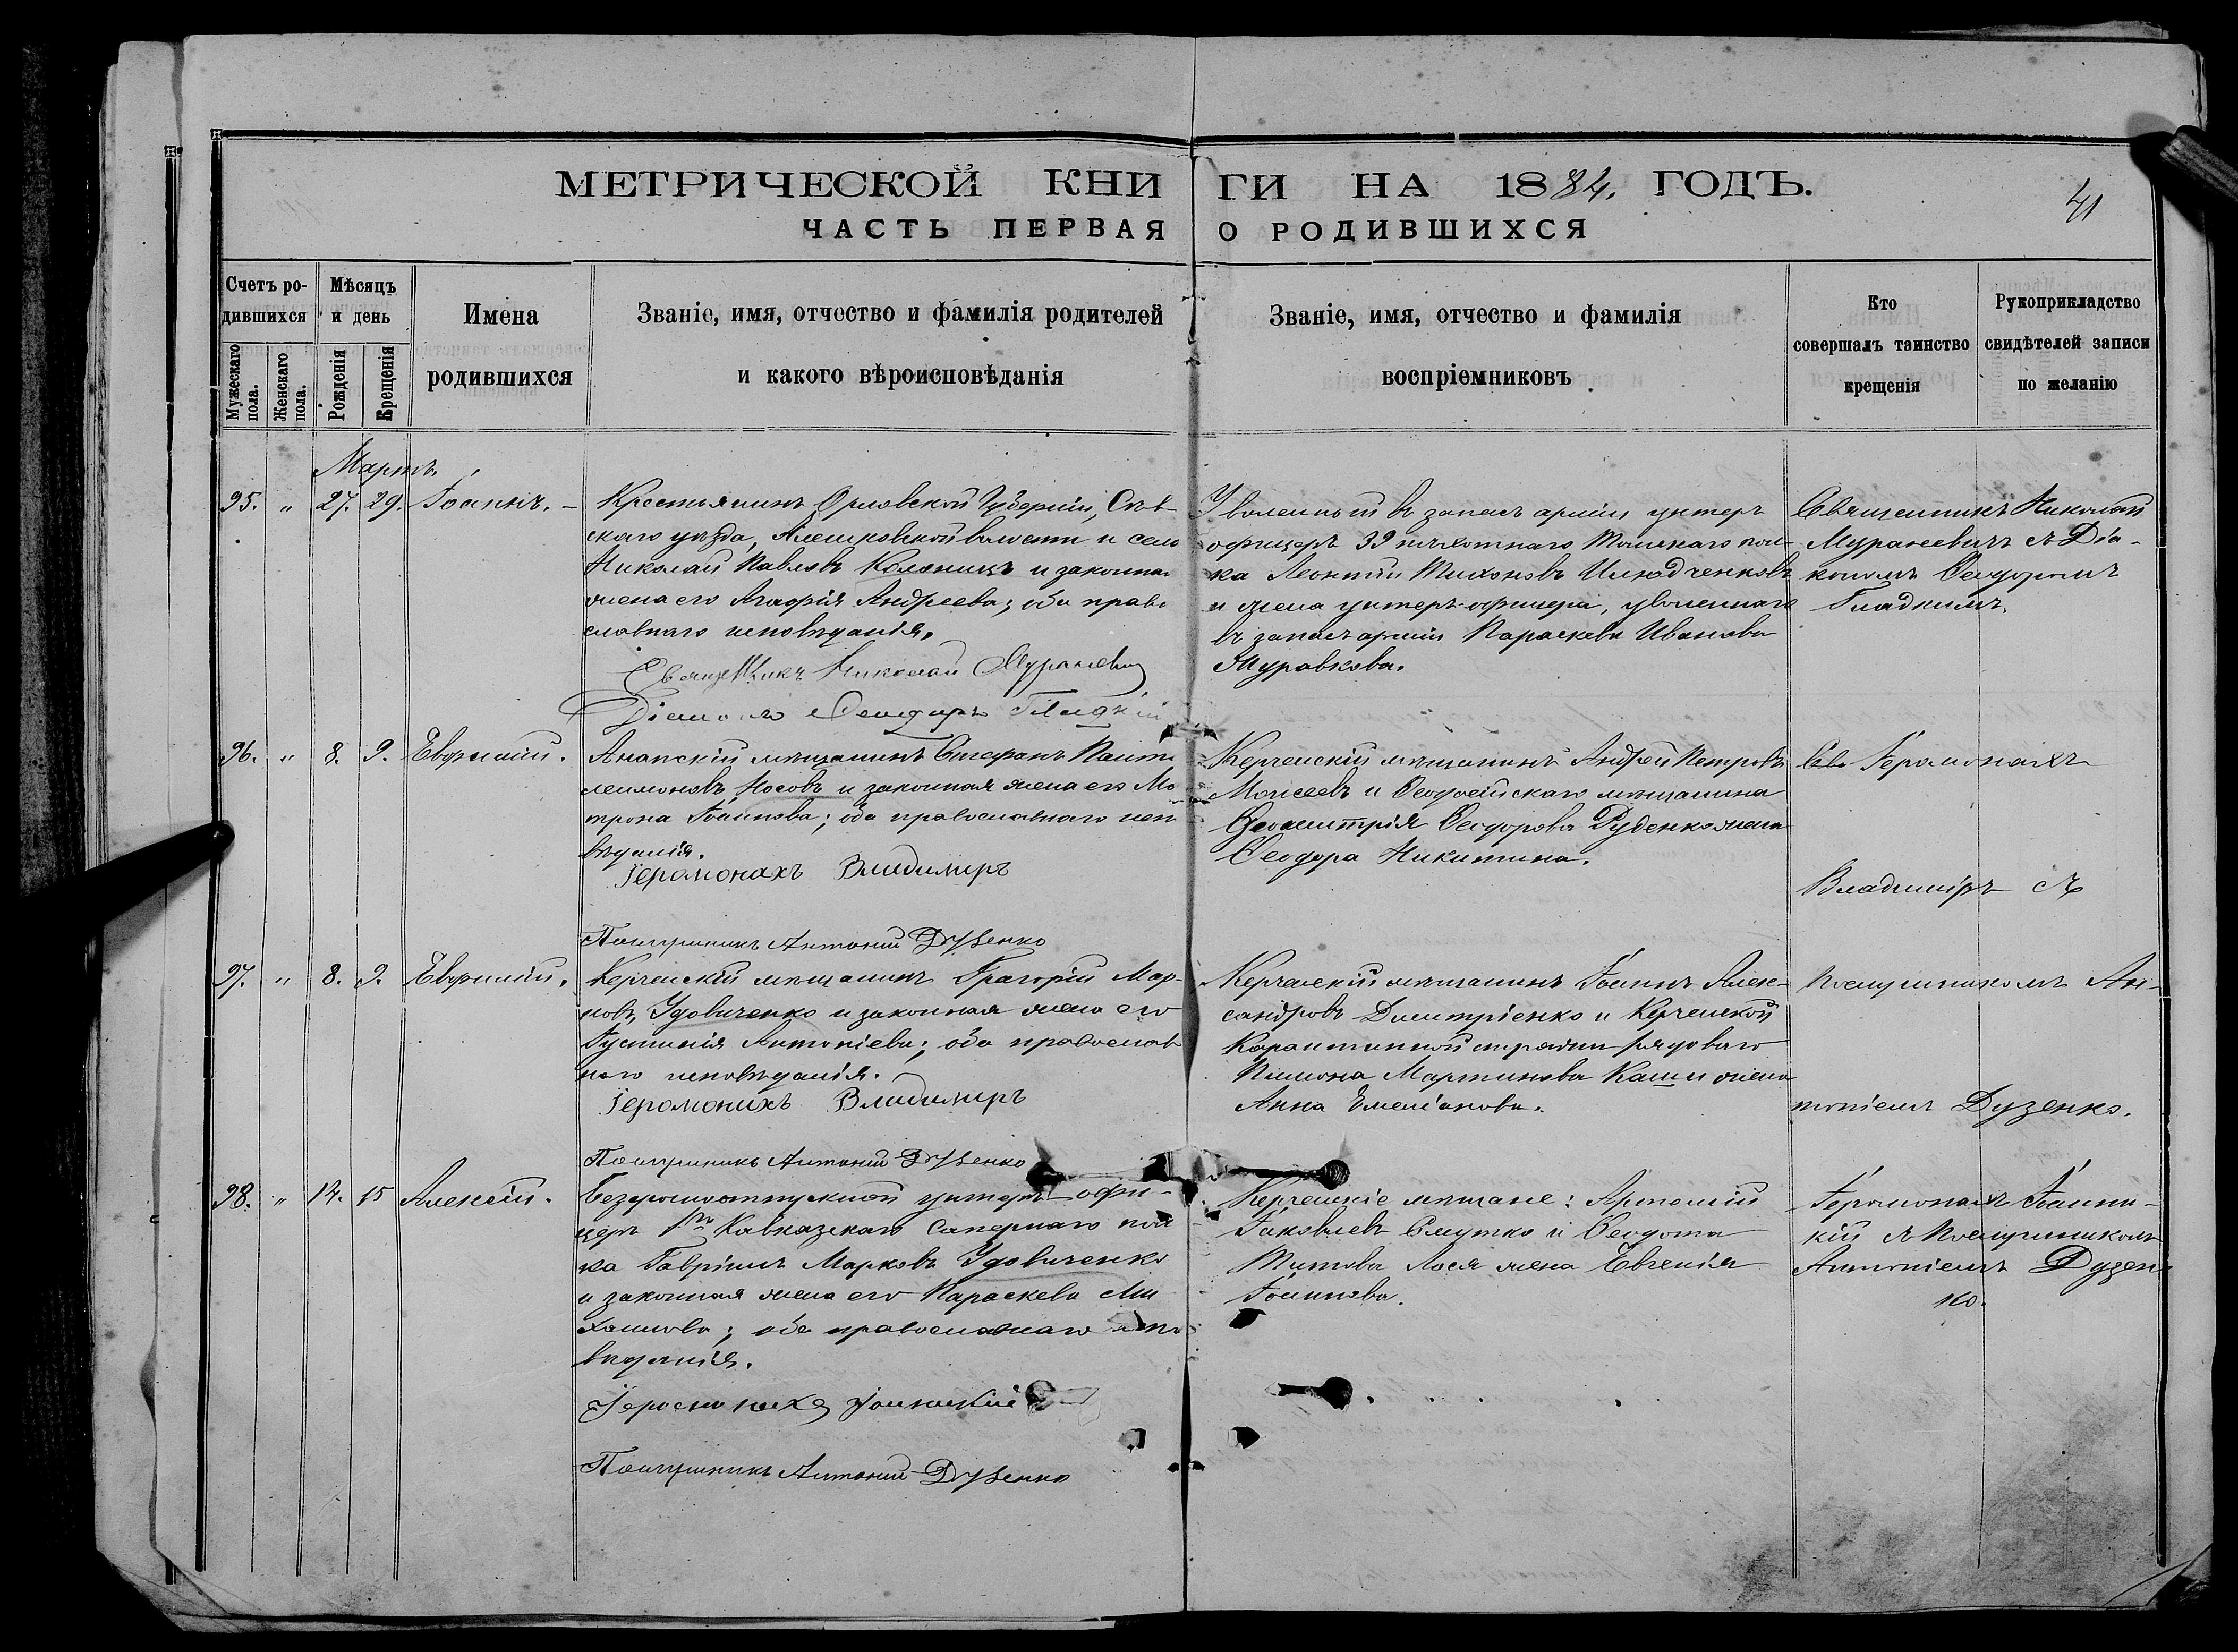 МЕТРИЧЕСКОЙ КНИГИ НА 1884. ГОДЪ.
41
ЧАСТЬ ПЕРВАЯ О РОДИВШИХСЯ
Счетъ родившихся
Мѣсяцъ и день
Имена родившихся
Званіе, имя, отчество и фамилія родителей
и какого вѣроисповѣданія
Званіе, имя, отчество и фамилія
воспріемниковъ
Кто
совершалъ таинство
крещенія
Рукоприкладство
свидѣтелей записи
по желанію
Мужескаго пола.
Женскаго пола.
Рожденія
Крещенія
Мартъ.
95. " 27. 29. Іоаннъ. –
Крестьянинъ Орловской Губерніи, Сѣв-
скаго уѣзда, Алешковской волости и села
Николай Павловъ Коломицъ и законная
жена его Агафія Андреева; оба право
славнаго исповѣданія.
Священникъ Николай Мураневичъ
Діаконъ Ѳеодоръ Гладкій
Уволенный въ запасъ арміи унтеръ
офицеръ 39 пѣхотнаго Томскаго пол-
ка Леонтій Тихоновъ
и жена унтеръ-офицера, уволеннаго
въ запасъ арміи Параскева Иванова
Журавкова.
Священникъ Николай
Мураневичъ съ Діа-
кономъ Ѳеодоромъ
Гладкимъ.
96. " 8. 9. Евфимій.
Анапскій мѣщанинъ Стефанъ Панте
леимоновъ Носовъ и законная жена его Ма
трона Іоаннова; оба православнаго испо
вѣданія.
Іеромонахъ Владимиръ
Послушникъ Антоній Дузенко
Керченскій мѣщанинъ Андрей Петровъ
Моисеевъ и Ѳеодосійскаго мѣщанина
Димитрія Ѳеодорова Руденко жена
Ѳеодора Никитина.
Іеромонахъ
Владиміръ съ
97. " 8. 9. Евфимій.
Керченскій мѣщанинъ Григорій Мар-
ковъ Удовиченко и законная жена его
Іустинія Антоніева; оба православ
наго исповѣданія.
Іеромонахъ Владимиръ
Послушникъ Антоній Дузенко
Керченскій мѣщанинъ Іоаннъ Алек-
сандровъ Димитріенко и Керченской
Карантинной стражи рядоваго
Пимона Мартинова Каши жена
Анна Емеліанова.
послушникомъ Ан-
тоніемъ Дузенко.
98. " 14. 15 Алексій.
Безсрочноотпускной унтеръ-офи-
церъ 1го Кавказскаго Сапернаго пол
ка Гавріилъ Марковъ Удовиченко
и законная жена его Параскева Ми
хаилова; оба православнаго испо
вѣданія.
Іеромонахъ Іоанникій
Послушникъ Антоній Дузенко
Керченскіе мѣщане: Артемій
Іаковлевъ Смутко и Ѳеодота
Титова Лося жена Евгенія
Іоаннова.
Іеромонахъ Іоанни-
кій съ Послушникомъ
Антоніемъ Дузен
ко.